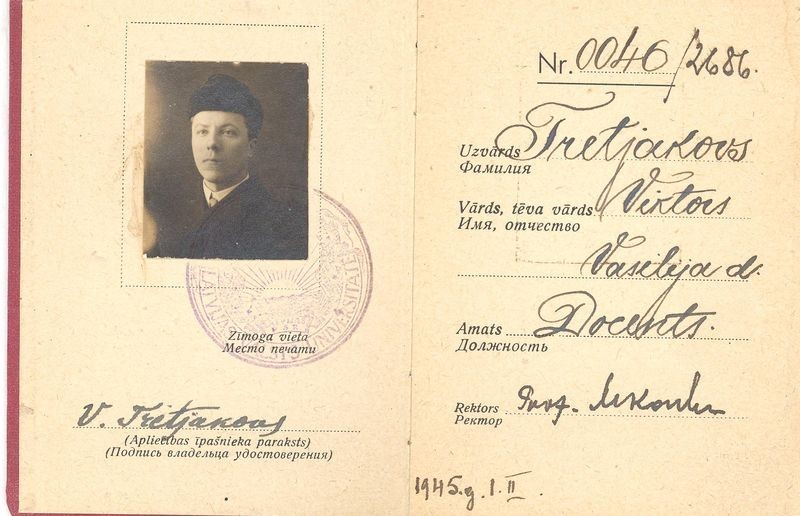 Zīmoga vieta
Место печати
V. Tretjakovs
(Apliecības īpašnieka paraksts)
(Подпись владельца удостоверения)
Nr. 0046/2686.
Uzvārds Tretjakovs
Фамилия
Vārds, tēva vārds Viktors
Имя, отчество
Vasilija d.
Amats Docents.
Должность
Rektors Prof.
Ректор
1945.g. 1. II.